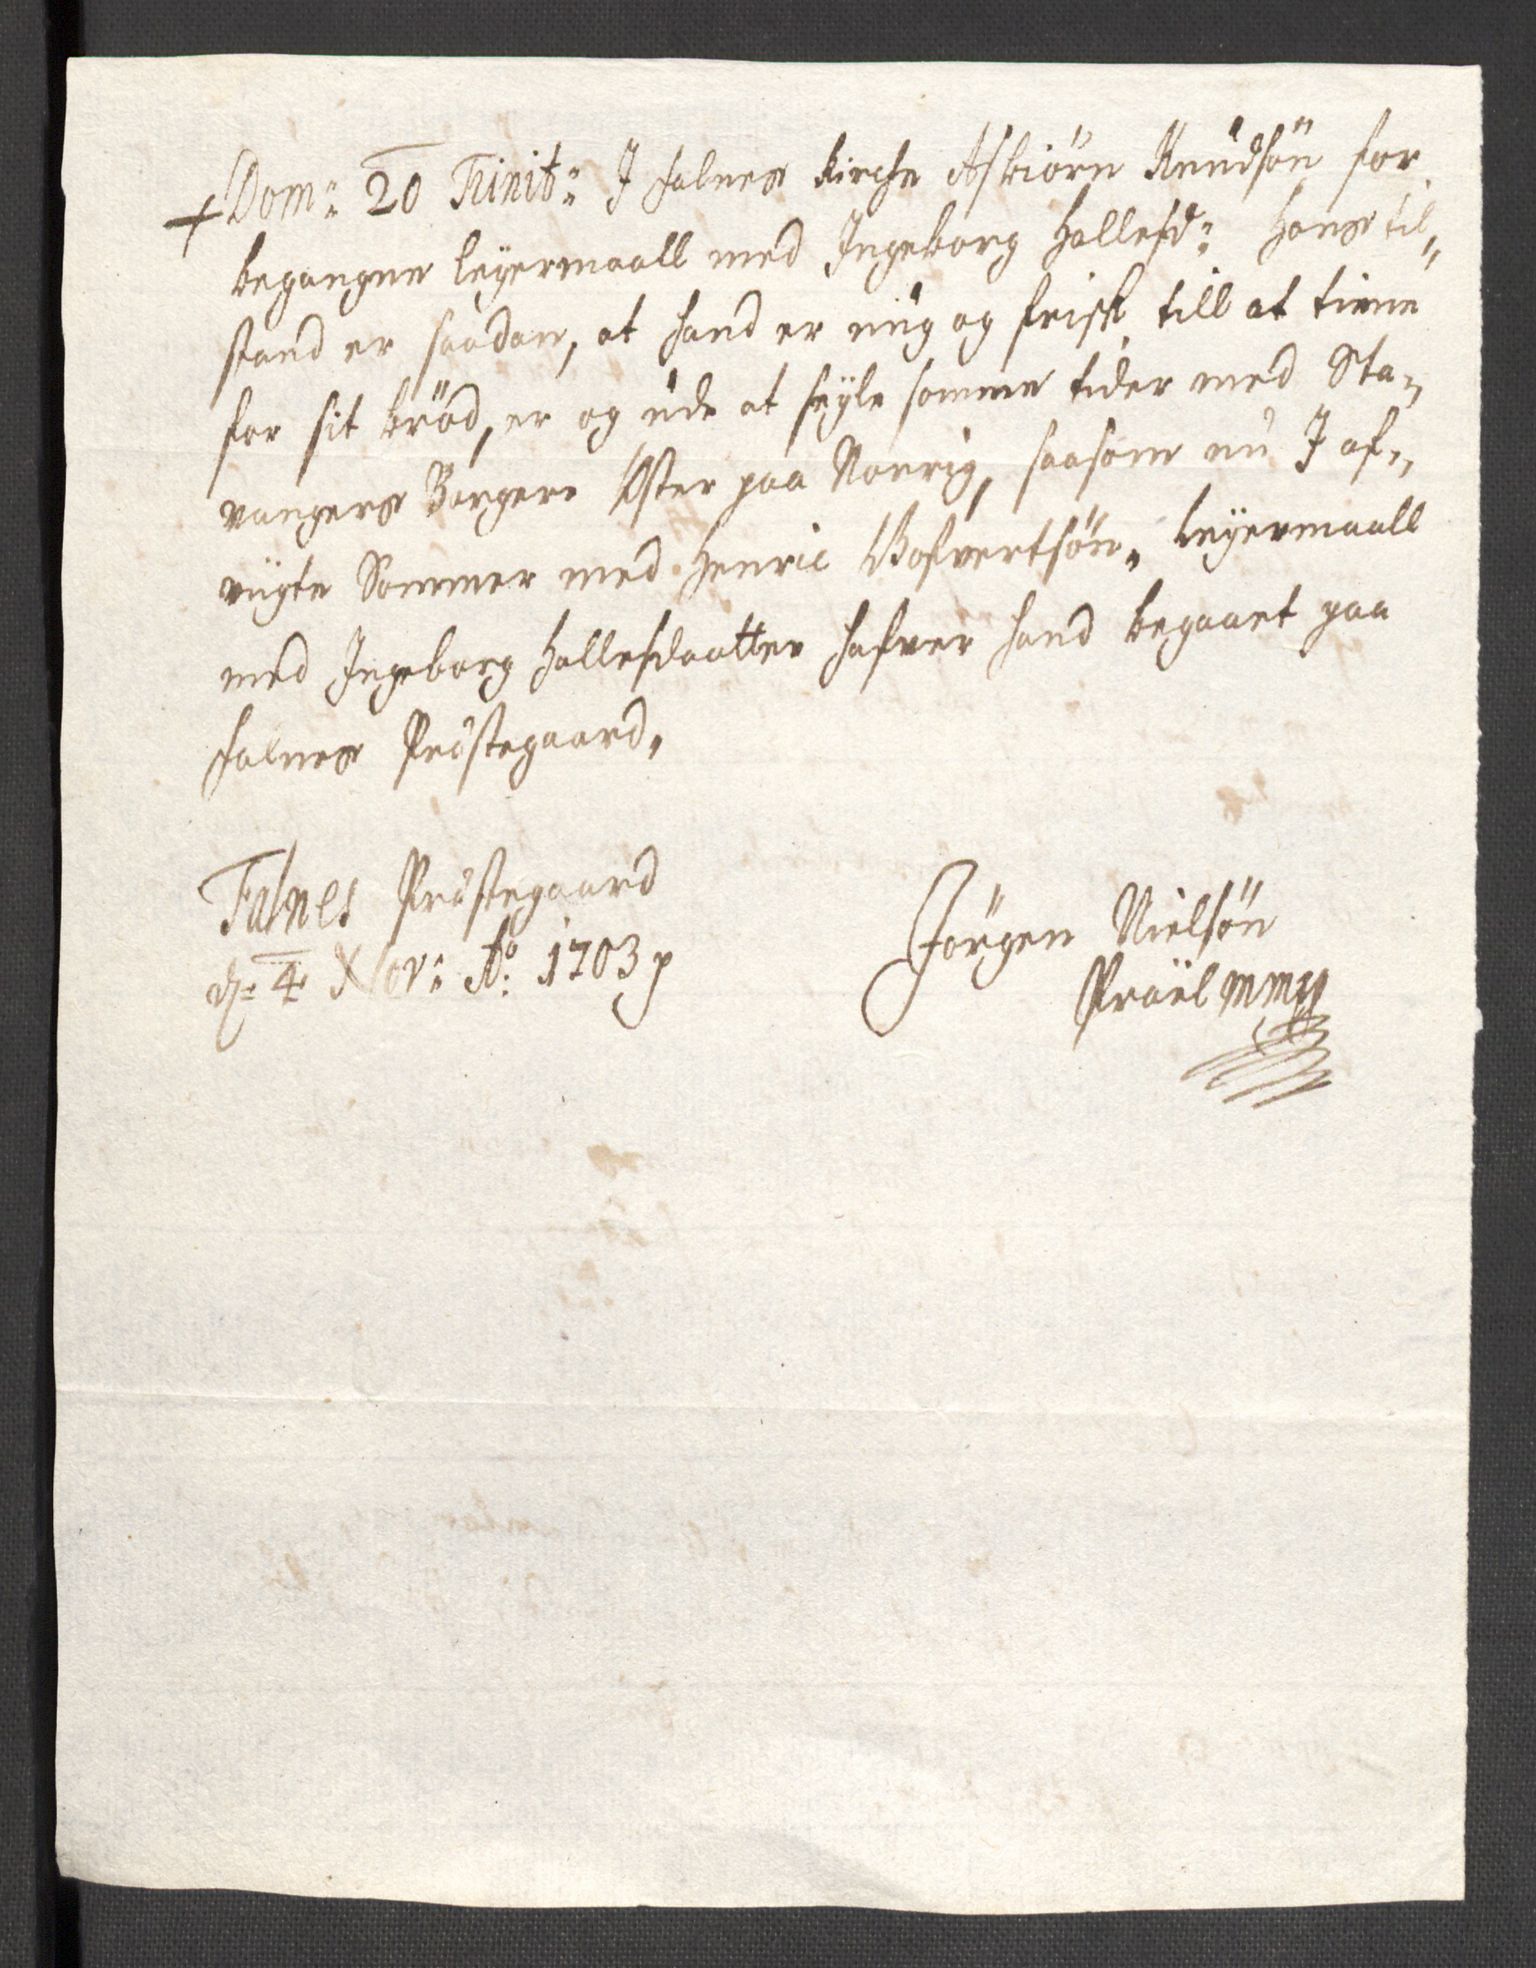 + Dom: 20 Trinit: I Falnes Kirche Asbiörn Knudsön for
begangne leyermaall med Ingeborg Hallefd: Hans til„
stand er saadan, at hand er ung og frisk till at tiene
for sit bröd, er og ude at seyle somme tider med Sta„
vangers Borgere Öster paa Norrig, saasom nu I af„
vigte Sommer med Henric Gosvertsön„ Leyermaall
med Ingeborg Hallesdaatter hafver hand begaaet paa
Falnes Præstegaard„
Falnes Præstegaard
d: 4 Nov: Ao: 1703
Jörgen Nielsön
Präel mmp